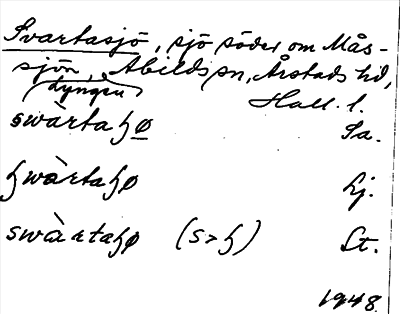 Svartasjö, sjö söder om Mås-
sjön, Abilds sn, Årstads hd,
Lyngen
Hall. l.
swàrtaꞕø Sa.
ꞕwàrtaꞕø Lj.
swàrtaꞕø (s>ꞕ) St.
1948.